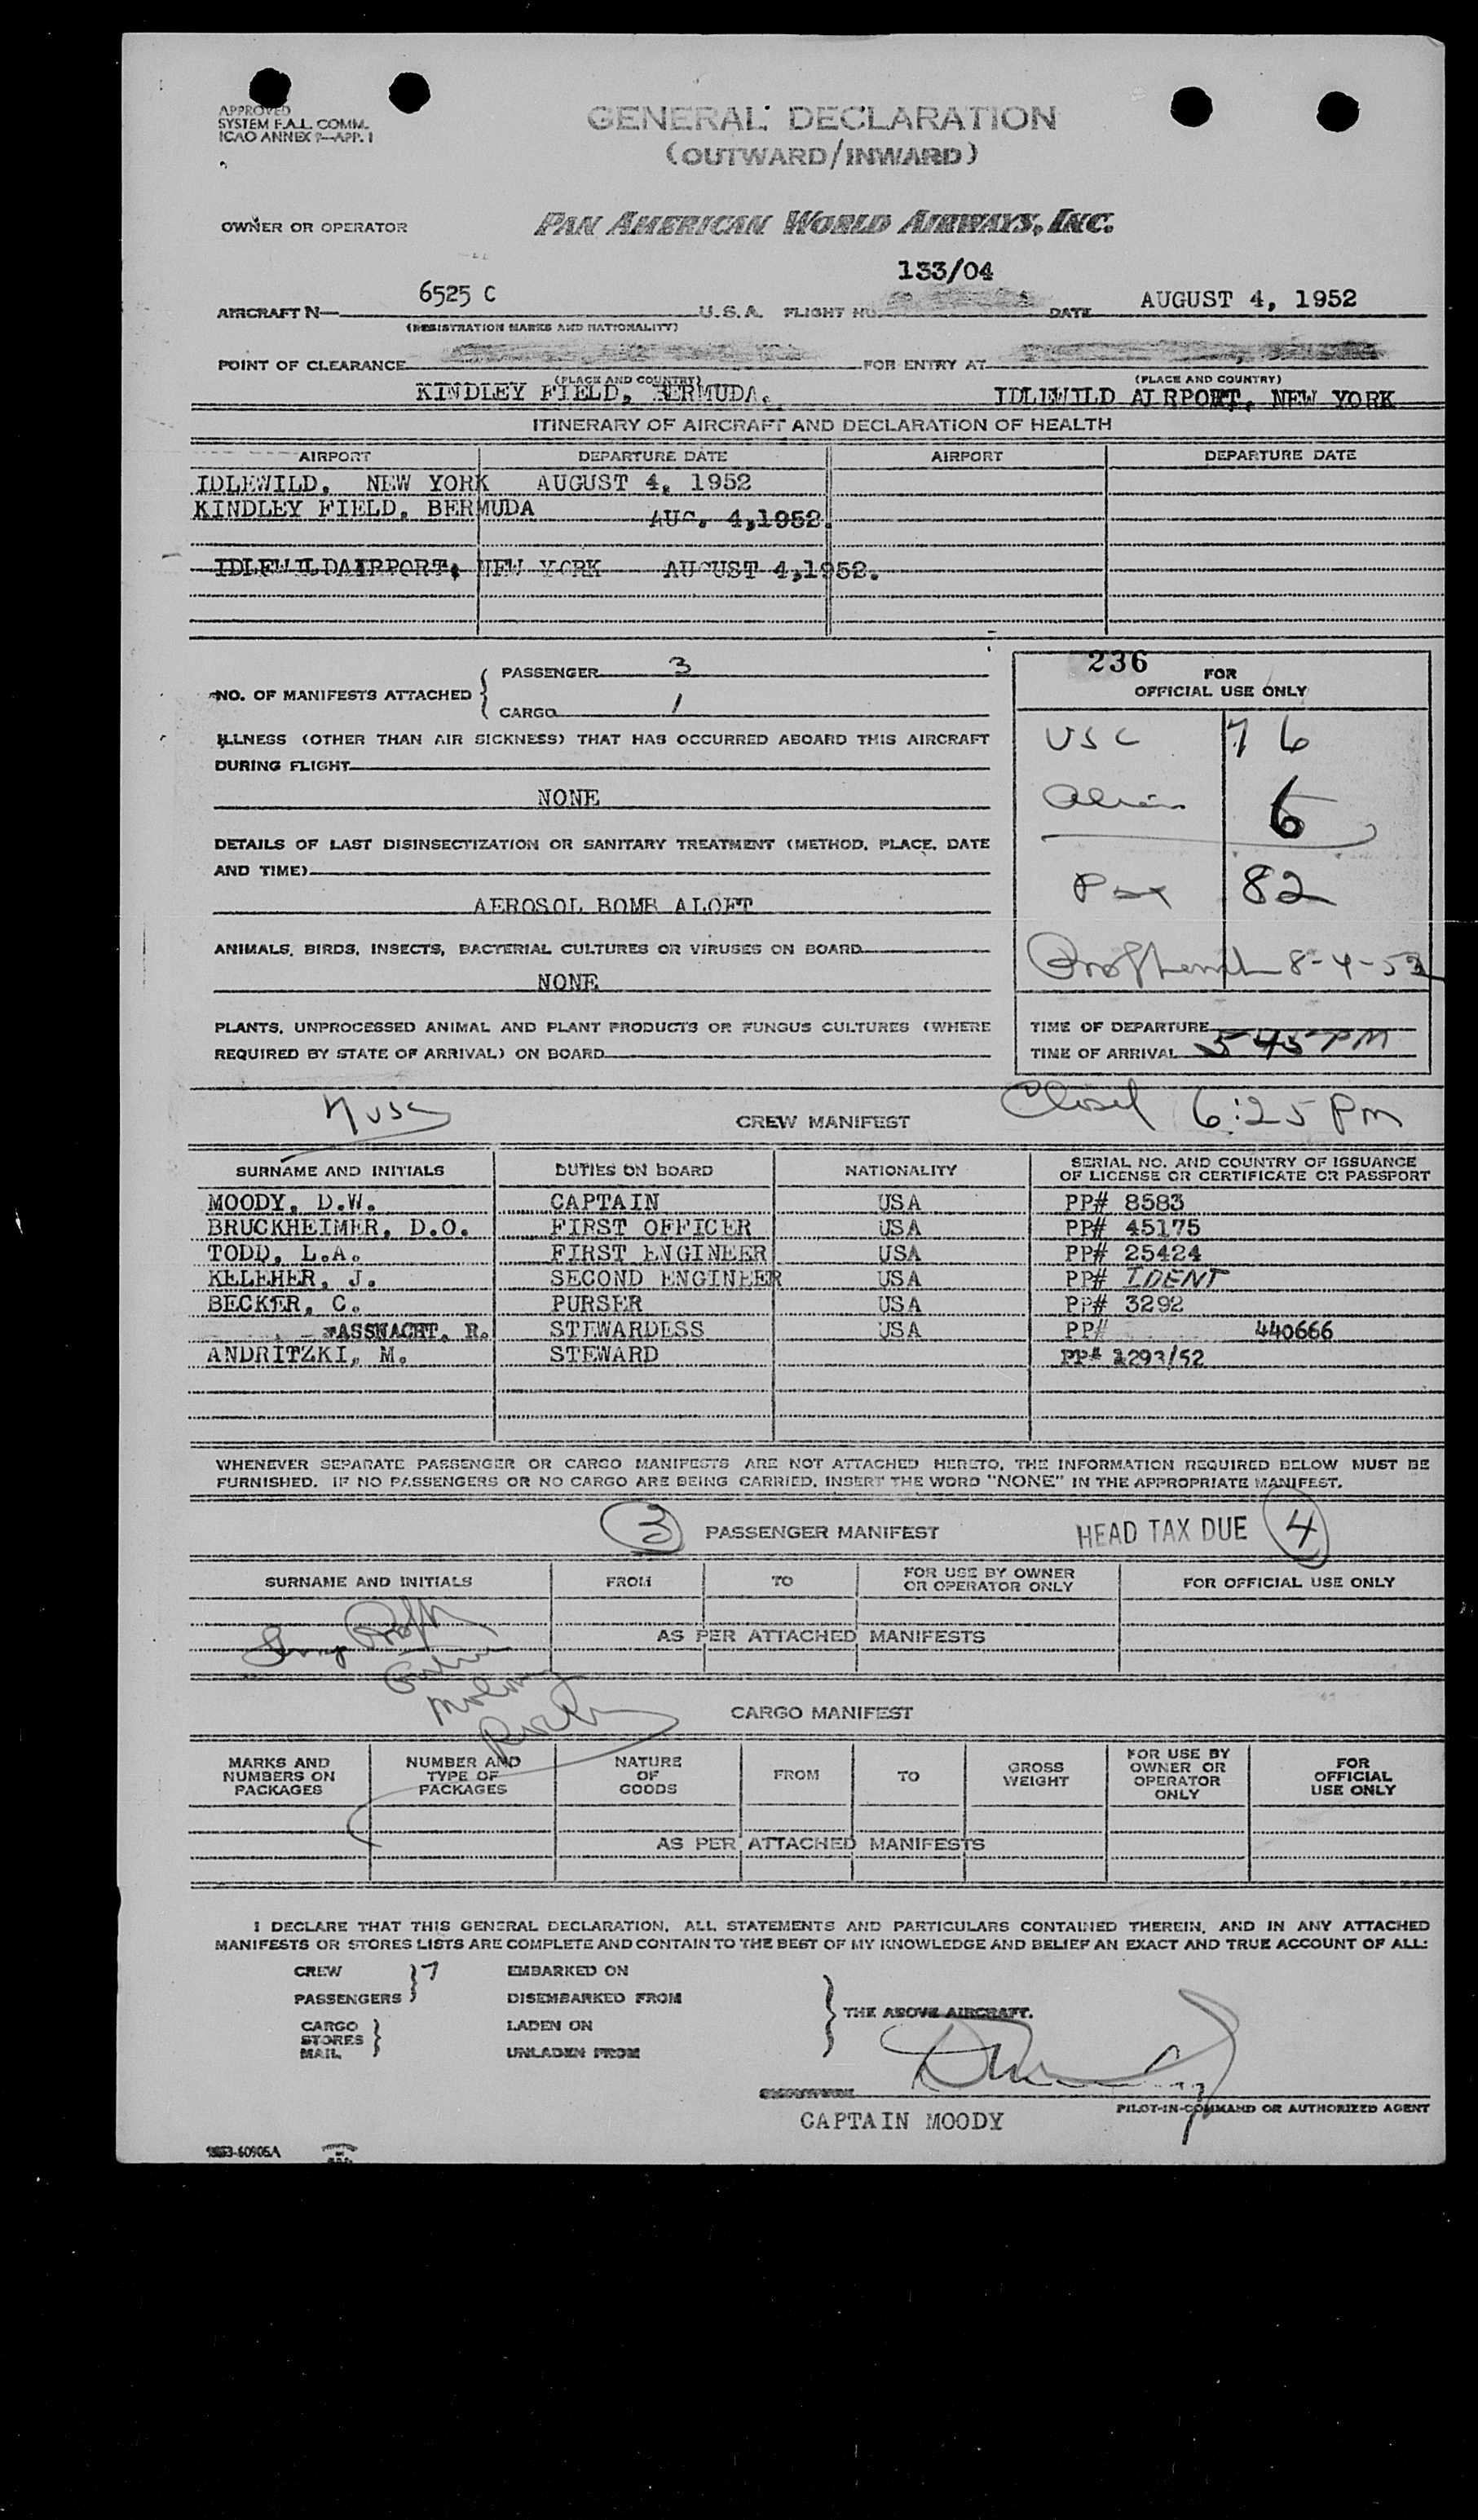 APPROVED
SYSTEM F.A.L. COMM.
ICAO ANNEX 9—APP. 1
GENERAL DECLARATION
(OUTWARD/INWARD)
OWNER OR OPERATOR PAN AMERICAN WORLD AIRWAYS, INC.
133/04
AIRCRAFT N— 6525 C U.S.A. FLIGHT NO. DATE AUGUST 4, 1952
(REGISTRATION MARKS AND NATIONALITY)
POINT OF CLEARANCE FOR ENTRY AT
(PLACE AND COUNTRY) (PLACE AND COUNTRY)
KINDLEY FIELD, BERMUDA. IDLEWILD AIRPORT, NEW YORK
ITINERARY OF AIRCRAFT AND DECLARATION OF HEALTH
AIRPORT DEPARTURE DATE AIRPORT DEPARTURE DATE
IDLEWILD, NEW YORK AUGUST 4, 1952
KINDLEY FIELD, BERMUDA AUG. 4,1952.
IDLEWILDAIRPORT, NEW YORK AUGUST 4,1952.
NO. OF MANIFESTS ATTACHED
PASSENGER 3
CARGO 1
236 FOR
OFFICIAL USE ONLY
USC 76
Alien 6
Pax 82
8-4-52
TIME OF DEPARTURE
TIME OF ARRIVAL 545 PM
ILLNESS (OTHER THAN AIR SICKNESS) THAT HAS OCCURRED ABOARD THIS AIRCRAFT
DURING FLIGHT
NONE
DETAILS OF LAST DISINSECTIZATION OR SANITARY TREATMENT (METHOD, PLACE, DATE
AND TIME)
AEROSOL BOMB ALOFT
ANIMALS, BIRDS, INSECTS, BACTERIAL CULTURES OR VIRUSES ON BOARD
NONE
PLANTS, UNPROCESSED ANIMAL AND PLANT PRODUCTS OR FUNGUS CULTURES (WHERE
REQUIRED BY STATE OF ARRIVAL) ON BOARD
7 USC CREW MANIFEST Closed 6:25 Pm
SURNAME AND INITIALS DUTIES ON BOARD NATIONALITY SERIAL NO. AND COUNTRY OF ISSUANCE
OF LICENSE OR CERTIFICATE OR PASSPORT
MOODY, D.W. CAPTAIN USA PP# 8583
BRUCKHEIMER, D.O. FIRST OFFICER USA PP# 45175
TODD, L.A. FIRST ENGINEER USA PP# 25424
KELEHER, J. SECOND ENGINEER USA PP# IDENT
BECKER, C. PURSER USA PP# 3292
FASSNACHT, R. STEWARDESS USA PP# 440666
ANDRITZKI, M. STEWARD PP# 1293/52
WHENEVER SEPARATE PASSENGER OR CARGO MANIFESTS ARE NOT ATTACHED HERETO, THE INFORMATION REQUIRED BELOW MUST BE
FURNISHED. IF NO PASSENGERS OR NO CARGO ARE BEING CARRIED, INSERT THE WORD "NONE" IN THE APPROPRIATE MANIFEST.
3 PASSENGER MANIFEST HEAD TAX DUE 4
SURNAME AND INITIALS FROM TO FOR USE BY OWNER
OR OPERATOR ONLY FOR OFFICIAL USE ONLY
AS PER ATTACHED MANIFESTS
CARGO MANIFEST
MARKS AND
NUMBERS ON
PACKAGES
NUMBER AND
TYPE OF
PACKAGES
NATURE
OF
GOODS
FROM
TO
GROSS
WEIGHT
FOR USE BY
OWNER OR
OPERATOR
ONLY
FOR
OFFICIAL
USE ONLY
AS PER ATTACHED MANIFESTS
I DECLARE THAT THIS GENERAL DECLARATION, ALL STATEMENTS AND PARTICULARS CONTAINED THEREIN, AND IN ANY ATTACHED
MANIFESTS OR STORES LISTS ARE COMPLETE AND CONTAIN TO THE BEST OF MY KNOWLEDGE AND BELIEF AN EXACT AND TRUE ACCOUNT OF ALL:
CREW 7 EMBARKED ON
PASSENGERS DISEMBARKED FROM
THE ABOVE AIRCRAFT.
CARGO LADEN ON
STORES
MAIL UNLADEN FROM
SIGNATURE
CAPTAIN MOODY PILOT-IN-COMMAND OR AUTHORIZED AGENT